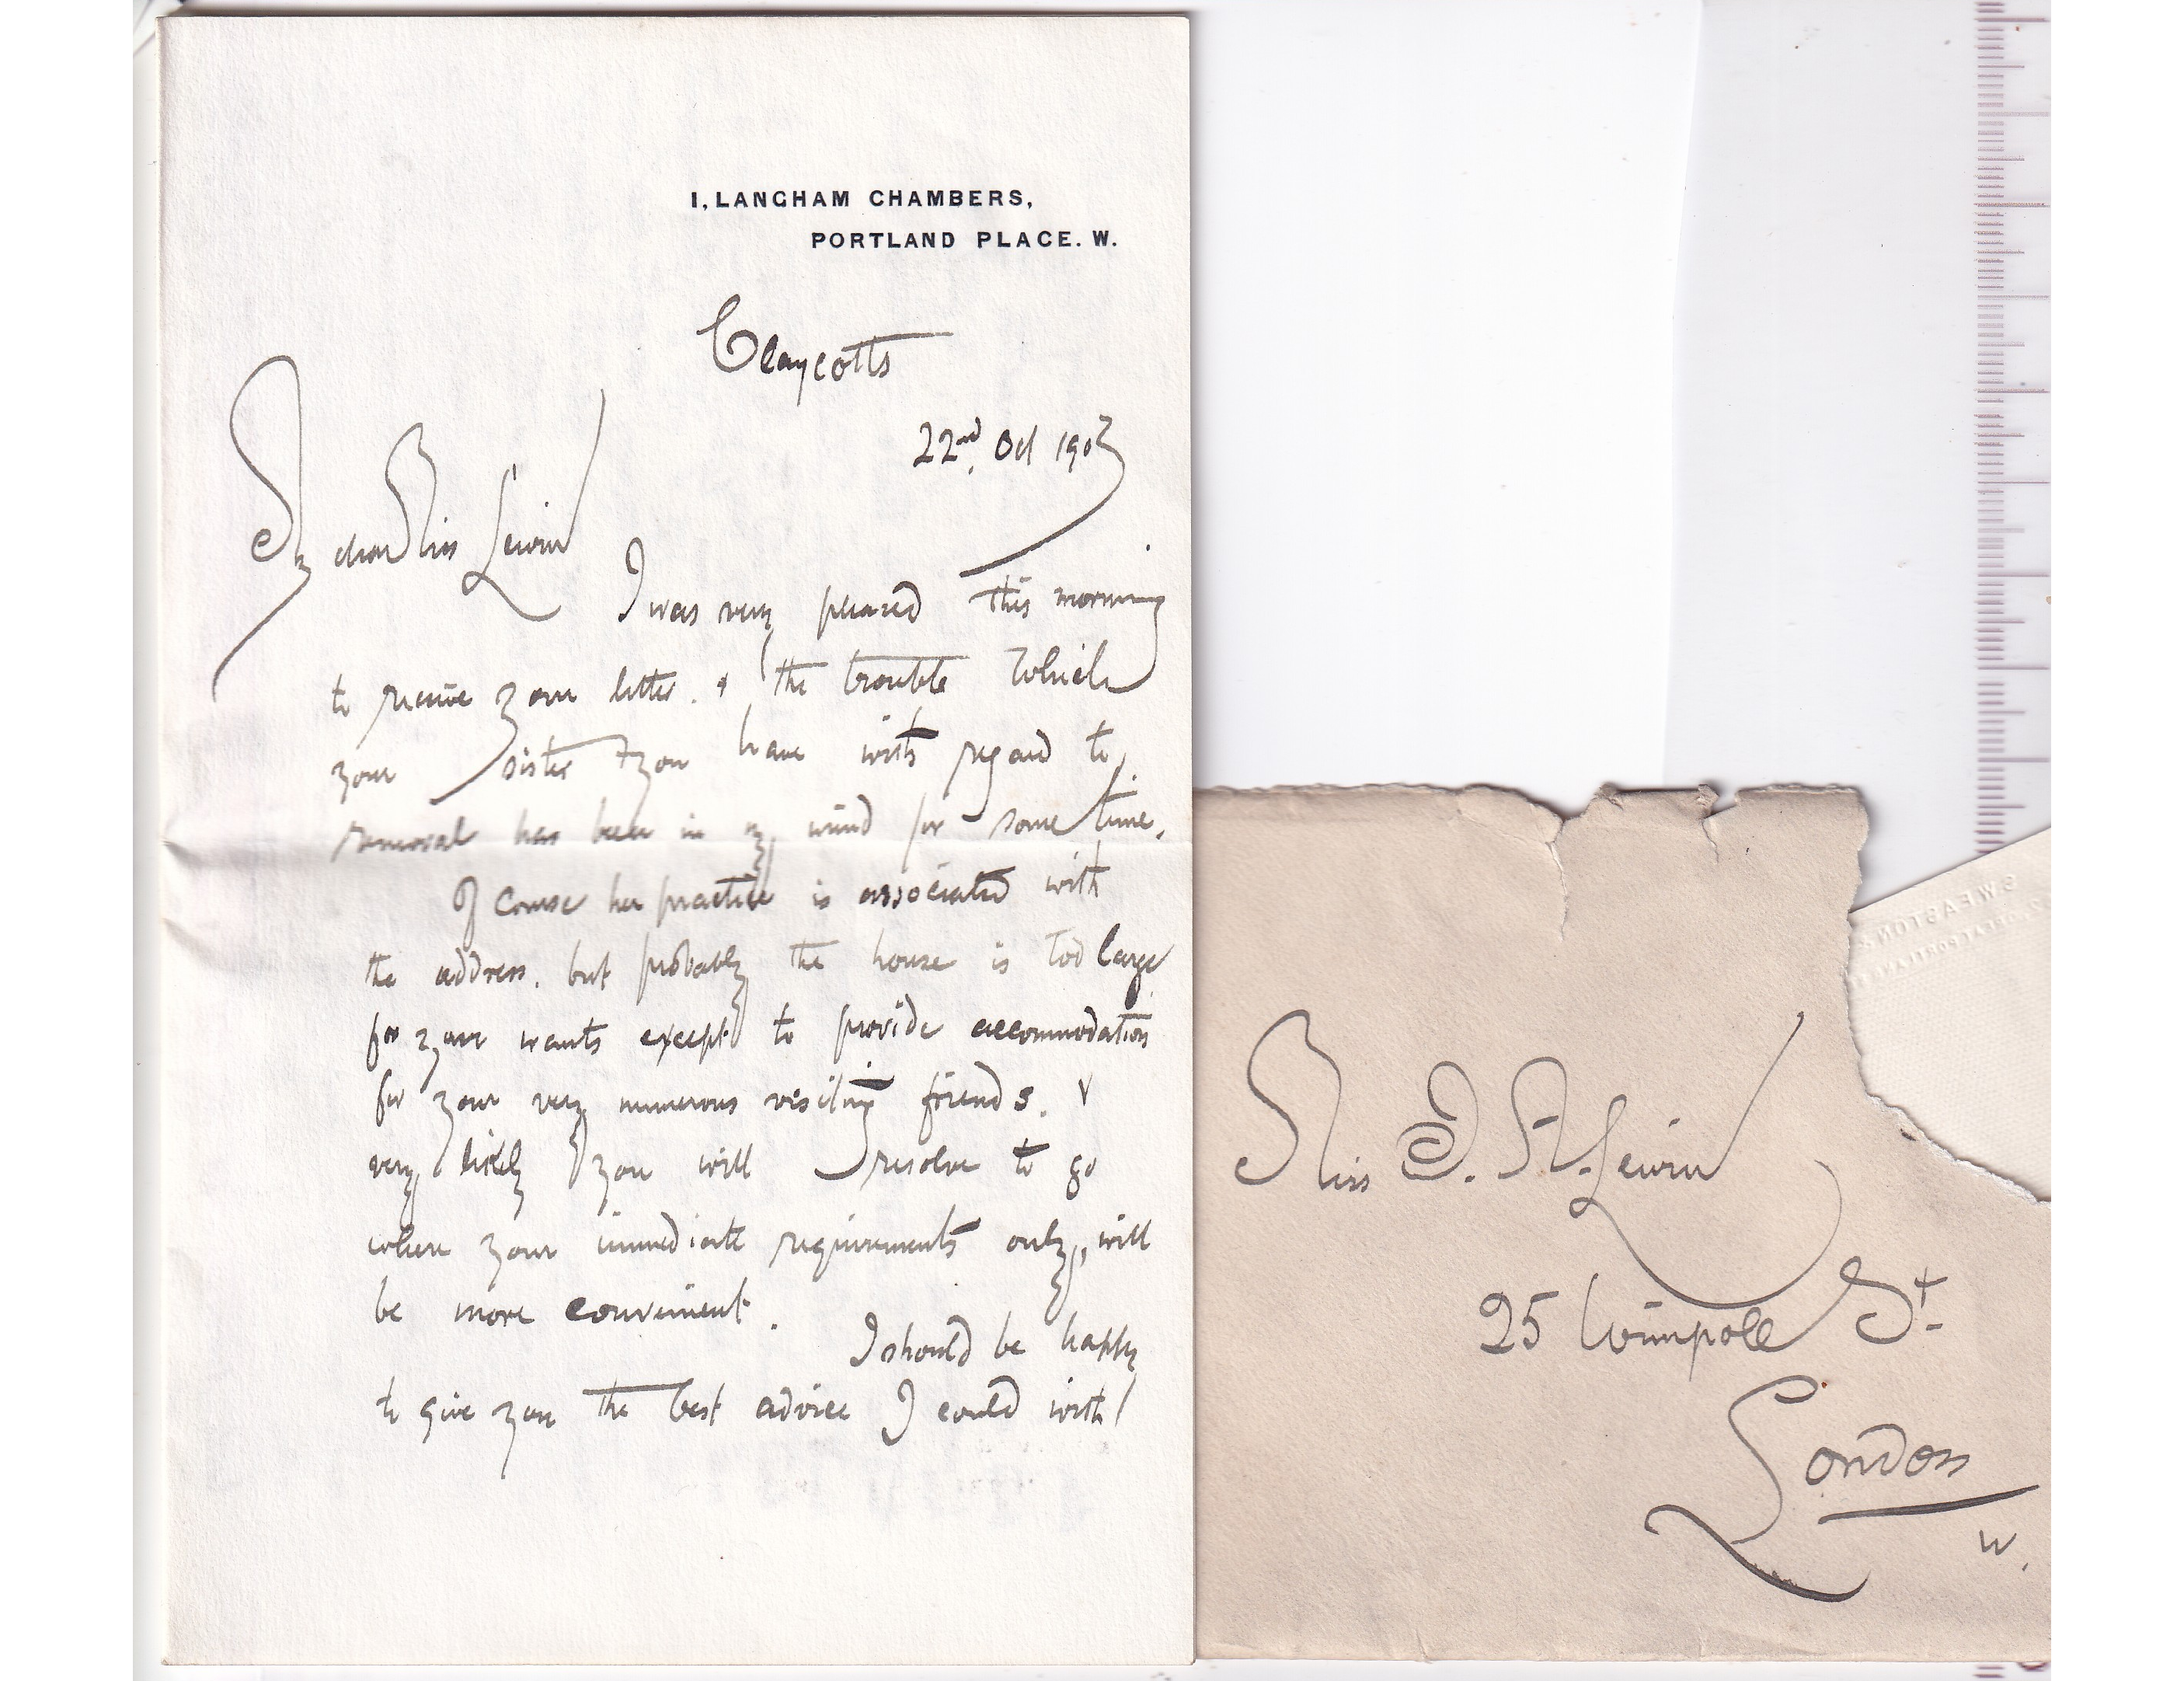 1, LANGHAM CHAMBERS,
PORTLAND PLACE. W.
Claycotts
22nd. Oct 1903
My dear Miss Lewin
I was very pleased this morning
to receive your letter. & the trouble which
your sister & you have with regard to
removal has been in my mind for some time.
Of course her practice is associated with
the address. but probably the house is too large
for your wants except to provide accommodation
for your very numerous visiting friends. &
very likely you will resolve to go
where your immediate requirements only, will
be more convenient.
I should be happy
to give you the best advice I could with
Miss J. A. Lewin
25 Wimpole St
London
W.